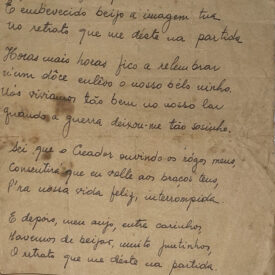 E embevecido beijo a imagem tua
no retrato que me déste na partida
Horas mais horas fico a relembrar
num dôce enlêvo o nosso bélo ninho.
Nós viviamos tão bem no nosso lar
quando a guerra deixou-me tão sosinho.
Sei que o Creador ouvindo os rógos meus,
consentirá que eu volte aos braços teus,
P'ra nossa vida feliz, interrompida
E depois, meu anjo, entre carinhos,
Havemos de beijar, muito juntinhos,
O retrato que me déste na partida.